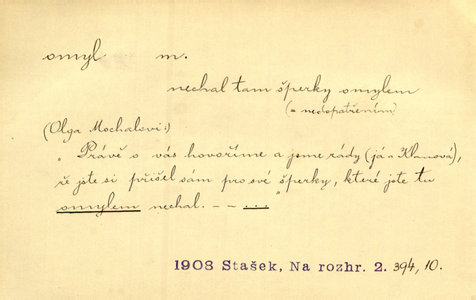 omyl m.
nechal tam šperky omylem
(= nedopatřením)
(Olga Mochalovi:)
„Právě o vás hovoříme a jsme rády (já a Klanová),
že jste si přišel sám pro své šperky, které jste tu
omylem nechal. – – ..."
1908 Stašek, Na rozhr. 2. 394, 10.